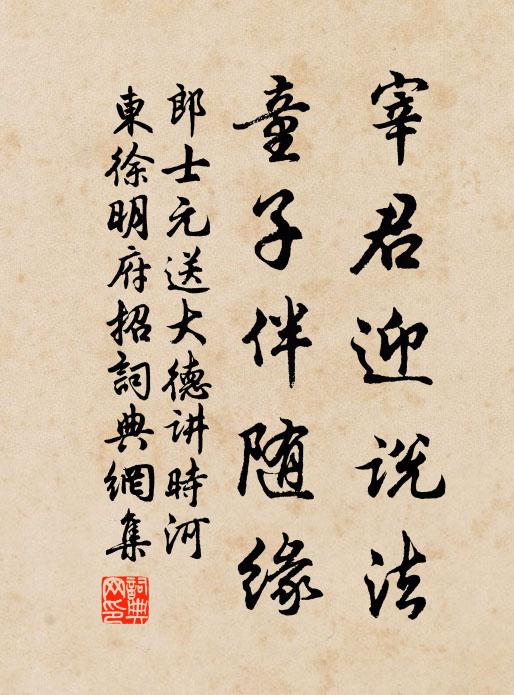 宰君迎说法
童子伴随缘
郎士元送大德讲时河
東徐明府招詞典網集
詞典網印